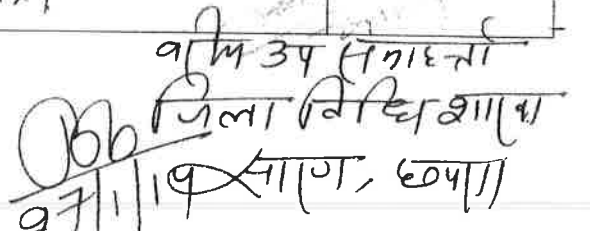 वरीय उप समाहर्त्ता
जिला विधि शाखा
सारण, छपरा